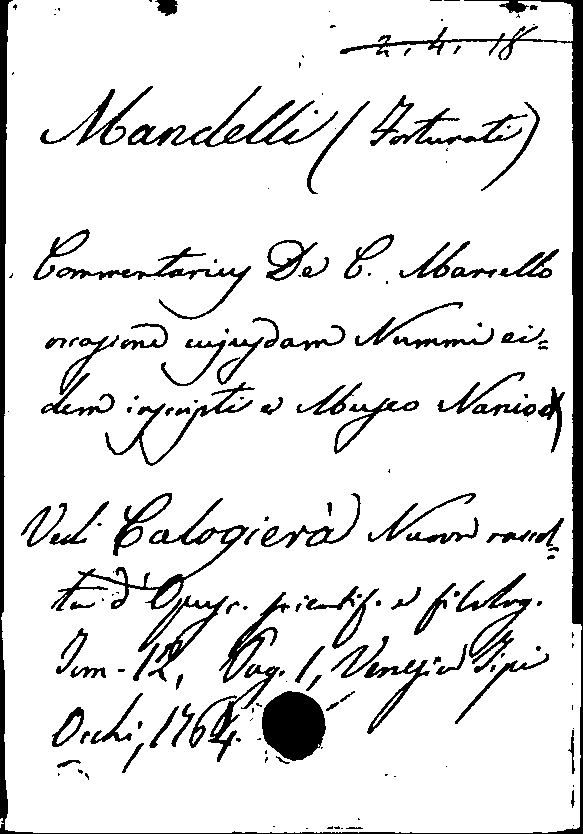 2. 4. 18
Mandelli (Fortunati)
Commentarius De C. Marcello
occasione cujusdam Nummi ei=
dem inscripti e Museo Naniod
Vedi Calogierà Nuova raccol=
ta d'Opusc. scientif. e filolog.
Tom. 12, Pag. 1, Venezia Tipi
Occhi, 1764.